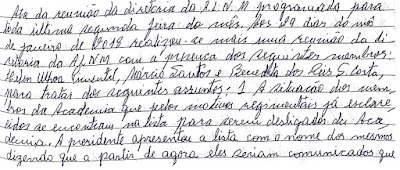 Ata da reunião da diretoria da A.L.N.M programada para
toda última segunda feira do mês. Aos 29 dias do mês
de janeiro de 2018 realizou-se mais uma reunião da di
retoria da ALNM com a presença dos seguintes membros:
Ulhoa Pimentel, Márcio Santos e Benedita dos Reis S. Costa,
para tratar dos seguintes assuntos: 1 A situação dos mem
bros da Academia que pelos motivos regimentais já esclare
cidos se encontram na lista para serem desligados da Aca
demia. A presidente apresentou a lista com o nome dos mesmos
dizendo que a partir de agora eles seriam comunicados que